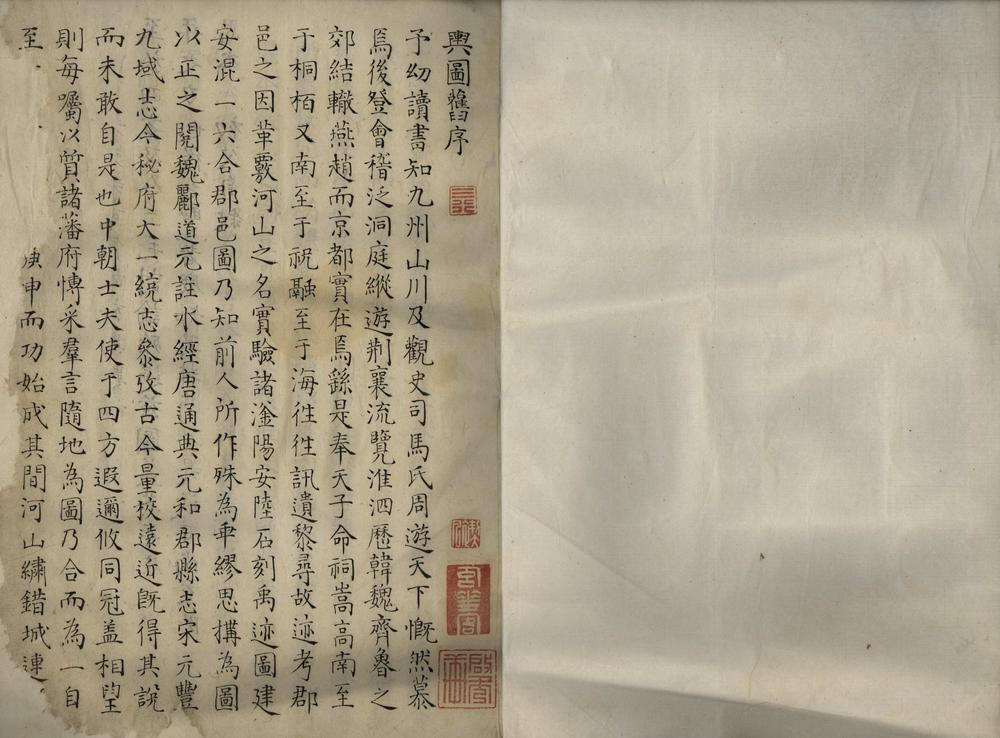 輿圖舊序
予幼讀書知九州山川及觀史司馬氏周遊天下慨然慕
焉後登會稽泛洞庭縱遊荆襄流覽淮泗歷韓魏齊魯之
郊結轍燕趙而京都實在焉繇是奉天子命祠嵩高南至
于桐栢又南至于祝融至于海徃徃訊遺黎尋故迹考郡
邑之因革覈河山之名實驗諸滏陽安陸石刻禹迹圖建
安混一六合郡邑圖乃知前人所作殊為乖繆思搆為圖
以正之閱魏酈道元註水經唐通典元和郡縣志宋元豐
九域志今秘府大一統志叅攷古今量校遠近旣得其說
而未敢自是也中朝士夫使于四方遐邇攸同冠盖相望
則每囑以質諸藩府愽采羣言隨地為圖乃合而為一自
至
庚申而功始成其間河山繡錯城連